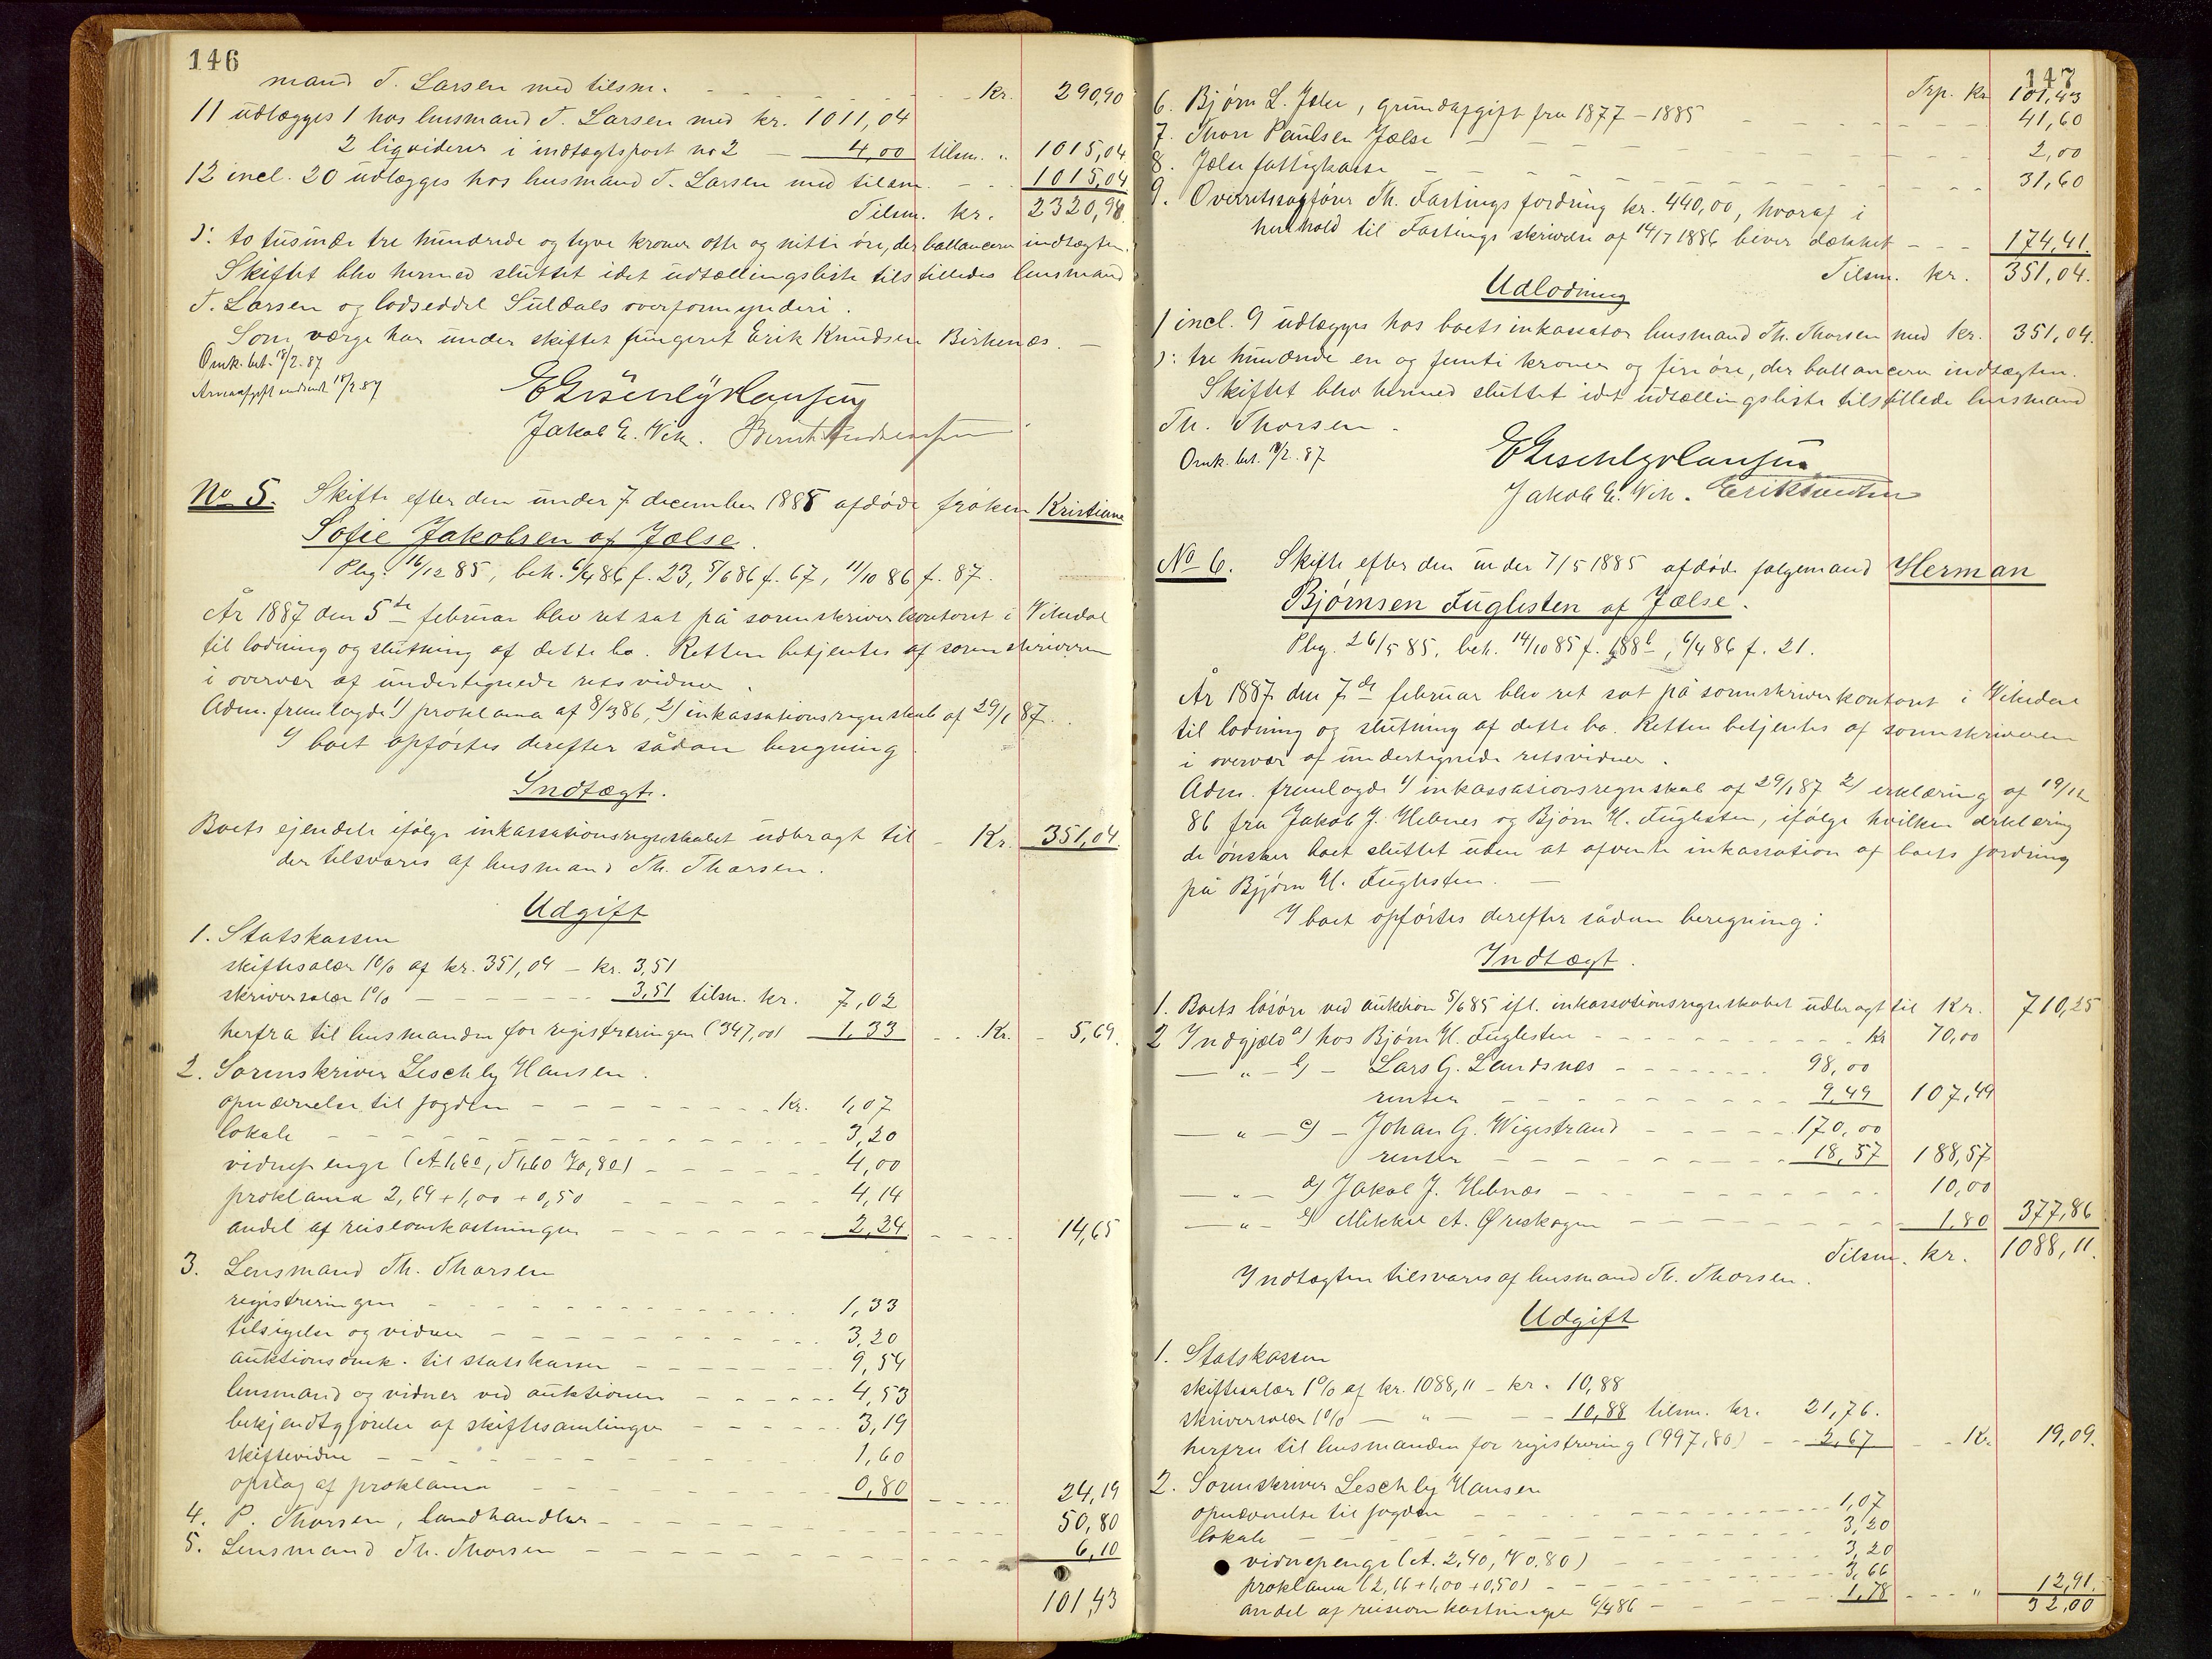 146
mand T. Larsen med tilsm. Kr. 290,90
11 udlægges 1 hos lensmand T. Larsen med kr. 1011,04
2 liqviderer i indtægtspost no 2 — 4,00 tilsm. " 1015,04
12 incl. 20 udlægges hos lensmand T. Larsen med tilsm. 1015,04
Tilsm. kr. 2320,98
ɔ: to tusinde tre hundrede og tyve kroner otte og nitti øre, der ballancerer indtægten.
Skiftet blev hermed sluttet idet udtællingsliste tilstilledes lensmand
T. Larsen og lodseddel Suldals overformynderi.
Som værge har under skiftet fungeret Erik Knudsen Birkenæs. —
Omk. bet. 18/2. 87
Arveafgift indsendt 18/2 87
E Leschly Hansen
Jakob E. Vik. Bernt Andreassen
No 5. Skifte efter den under 7 december 1885 afdøde frøken Kristiane
Sofie Jakobsen af Jælse.
Pbg. 16/12 85, beh. 6/4 86 f. 23, 5/6 86 f. 67, 11/10 86 f. 87.
År 1887 den 5te februar blev ret sat på sorenskriverkontoret i Vikedal
til lodning og slutning af dette bo. Retten betjentes af sorenskriveren
i overvær af undertegnede retsvidner.
Adm. fremlagde 1) proklama af 8/3 86, 2) inkassationsregnskab af 29/1 87.
I boet opførtes derefter sådan beregning
Indtægt.
Boets ejendele ifølge inkassationsregnskabet udbragt til — Kr. 351,04.
der tilsvares af lensmand Th. Thorsen.
Udgift
1. Statskassen
skiftesalær 1% af kr. 351,04 — kr. 3,51
skriversalær 1% — 3,51 tilsm. kr. 7,02
herfra til lensmanden for registreringen (347,00) 1,33 Kr. 5,69.
2. Sorenskriver Leschly Hansen.
opnævnelse til fogden Kr. 1,07
lokale 3,20
vidnepenge (A 1,60, T 1,60 V 0,80) 4,00
proklama 2,64 + 1,00 + 0,50 4,14
andel af reiseomkostninger 2,24 14,65
3. Lensmand Th. Thorsen
registreringen 1,33
tilsigelse og vidner 3,20
auktionsomk. til statskassen 9,54
lensmand og vidner ved auktionen 4,53
bekjendtgjørelse af skiftesamlinger 3,19
skiftevidne 1,60
opslag af proklama 0,80 24,19
4. P. Thorsen, landhandler 50,80
5. Lensmand Th. Thorsen 6,10
101,43
147
Trp. Kr 101,43
6. Bjørn L. Jelse, grundafgift fra 1877 – 1885 41,60
7. Thore Paulsen Jælse 2,00
8. Jælse fattigkasse 31,60
9. Overretssagfører Th. Fastings fordring kr. 440,00, hvoraf i
henhold til Fastings skrivelse af 14/7 1886 bliver dækket 174,41.
Tilsm. kr. 351,04.
Udlodning
1 incl. 9 udlægges hos boets inkassator lensmand Th. Thorsen med kr. 351,04.
ɔ: tre hundrede en og femti kroner og fire øre, der ballancerer indtægten.
Skiftet blev hermed sluttet idet udtællingsliste tilstillede lensmand
Th. Thorsen.
Omk. bet. 18/2. 87
E Leschly Hansen
Jakob E. Vik. Erik Knudsen
No 6. Skifte efter den under 7/5 1885 afdøde følgemand Herman
Bjørnsen Fuglesten af Jælse.
Pbg. 26/5 85, beh. 14/10 85 f. 188b, 6/4 86 f. 21.
År 1887 den 7de februar blev ret sat på sorenskriverkontoret i Vikedal
til lodning og slutning af dette bo. Retten betjentes af sorenskriveren
i overvær af undertegnede retsvidner.
Adm. fremlagde 1) inkassasionsregnskab af 29/1 87 2) erklæring af 19/12
86 fra Jakob J. Hebnes og Bjørn H. Fuglesten, ifølge hvilken erklæring
de ønsker boet sluttet uden at afvente inkassation af boets fordring
på Bjørn H. Fuglesten. —
I boet opførtes derefter sådan beregning:
Indtægt.
1. Boets løsøre ved auktion 5/6 85 ifl. inkassationsregnskabet udbragt til Kr. 710,25
2 Indgjæld a) hos Bjørn H. Fuglesten kr 70,00
— " — b) — Lars G. Landsnes 98,00
renter 9,49 107,49
— " — c) — Johan G. Wigestrand 170,00
renter 18,57 188,57
— " — d) Jakob J. Hebnæs 10,00
— " — e) Mikkel A. Øreskogen 1,80 377,86
Tilsm. kr. 1088,11.
Indtægten tilsvares af lensmand Th. Thorsen.
Udgift
1. Statskassen
skiftesalær 1% af kr. 1088,11 — kr. 10,88
skriversalær 1% — " — 10,88 tilsm. kr. 21,76.
herfra til lensmanden for registrering (997,80) 2,67 K. 19,09.
2. Sorenskriver Leschly Hansen
opnævnelse til fogden 1,07
lokale 3,20
vidnepenge (A. 2,40, V 0,80) 3,20
proklama (2,16 + 1,00 + 0,50) 3,66
andel af reiseomkostninger 6/4 86 1,78 " 12,91.
32,00